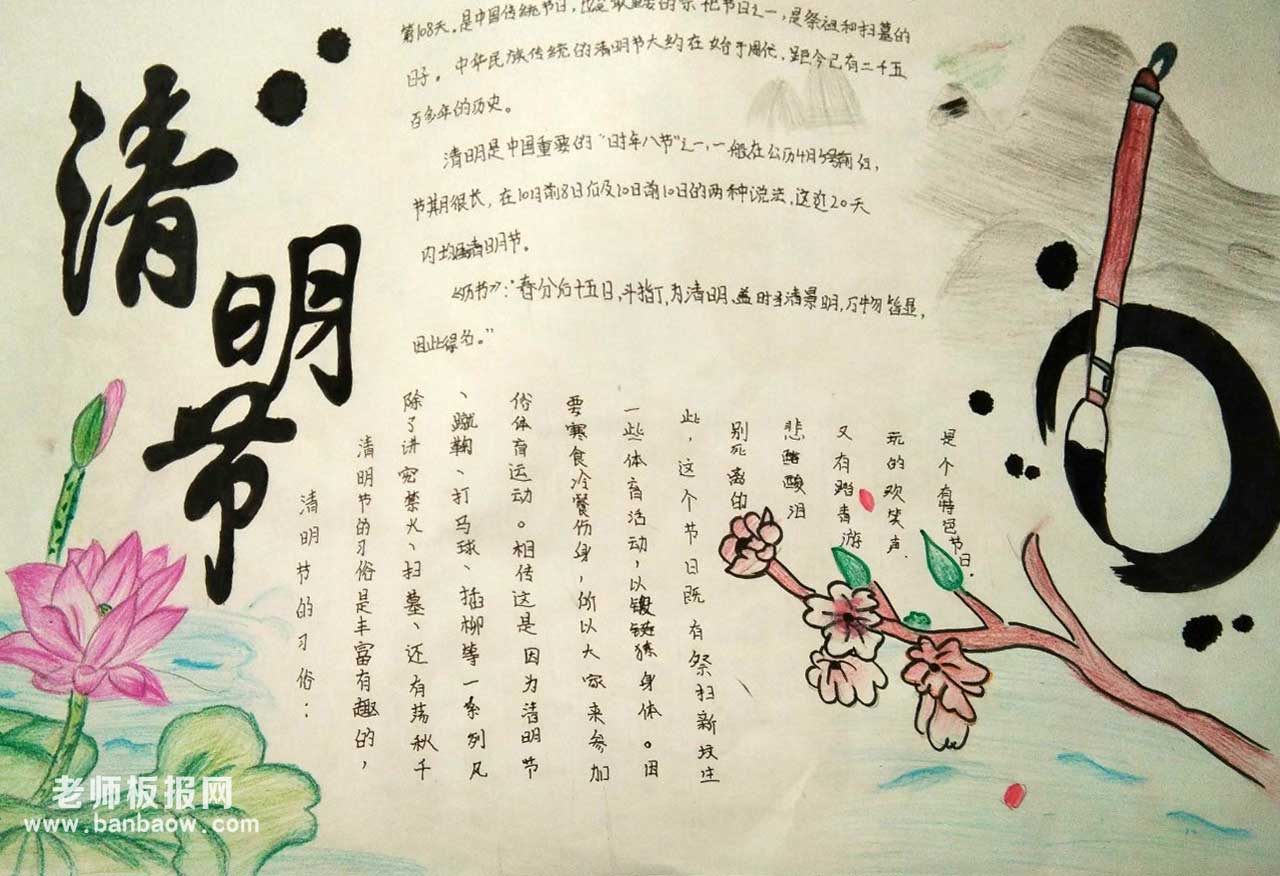 清明节
第108天。是中国传统节日,也是最重要的祭祀节日之一,是祭祖和扫墓的
日子。中华民族传统的清明节大约在始于周代,距今已有二千五
百多年的历史。
清明是中国重要的“时年八节”之一,一般在公历4月5号前后,
节期很长,在10日前8日后及10日前10日的两种说法,这近20天
内均属清明节。
《历书》:“春分后十五日,斗指丁,为清明,盖时当清景明,万物皆显,
因此得名。”
清明节的习俗:
清明节的习俗是丰富有趣的,
除了讲究禁火、扫墓、还有荡秋千
、蹴鞠、打马球、插柳等一系列风
俗体育运动。相传这是因为清明节
要寒食冷餐伤身,所以大家来参加
一些体育活动,以锻炼身体。因
此,这个节日既有祭扫新坟生
别死离的
悲酸泪
又有踏青游
玩的欢笑声.
是个有特色节日.
老师板报网
www.banbaow.com